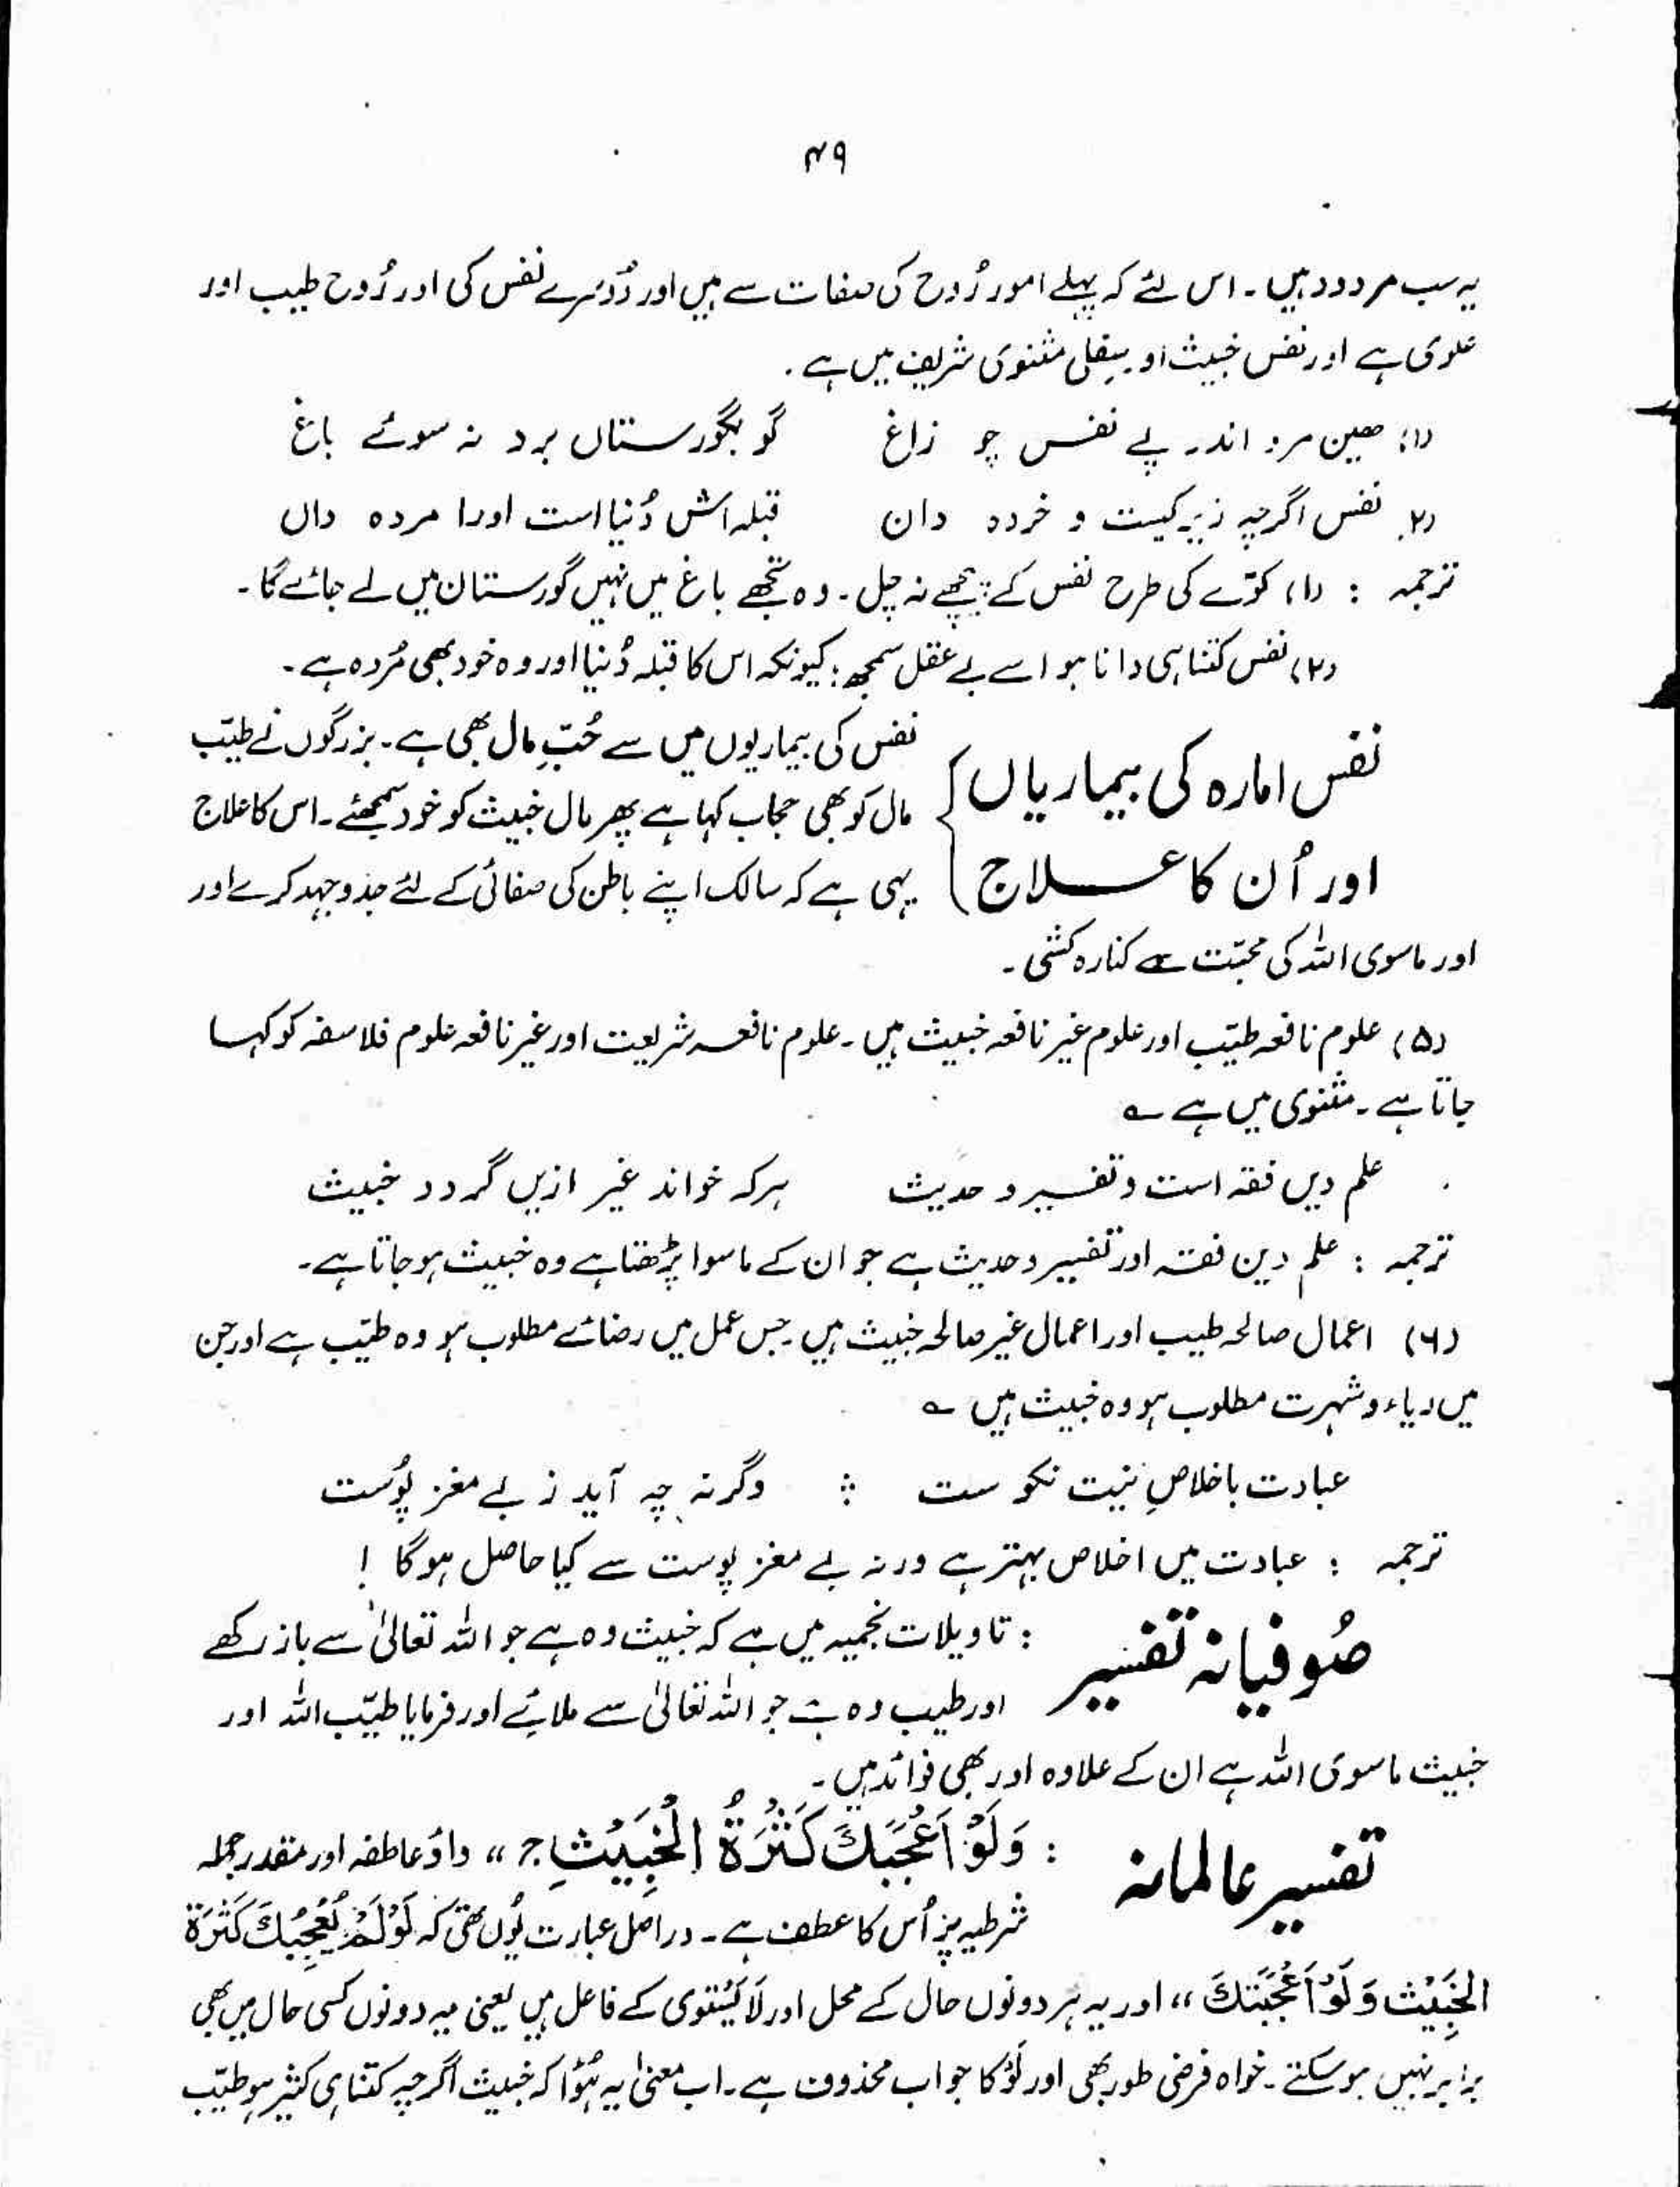 ۴۹
یہ سب مردود ہیں۔ اس لئے کہ پہلے امور رُوح کی صفات سے ہیں اور دُوسرے نفس کی اور رُوح طیب اور
علوی ہے اور نفس خبیث او سِفلی مثنوی شریف میں ہے۔
(۱) ھین مرو اندر پے نفس چو زاغ گو بگورستاں برد نہ سوئے باغ
(۲) نفس اگرچہ زیرکیست و خردہ دان قبلہ اش دُنیا است اورا مردہ داں
ترجمہ : (۱) کوّے کی طرح نفس کے پیچھے نہ چل۔ وہ تجھے باغ میں نہیں گورستان میں لے جائے گا۔
(۲) نفس کتنا ہی دانا ہو اسے بے عقل سمجھ؛ کیونکہ اس کا قبلہ دُنیا اور وہ خود بھی مُردہ ہے۔
نفس امارہ کی بیماریاں
اور اُن کا عـــلاج
نفس کی بیماریوں میں سے حُبِّ مال بھی ہے۔ بزرگوں نے طیّب
مال کو بھی حجاب کہا ہے پھر مال خبیث کو خود سمجھئے۔ اس کا علاج
یہی ہے کہ سالک اپنے باطن کی صفائی کے لئے جدوجہد کرے اور
اور ماسوی اللہ کی محبّت سے کنارہ کشی۔
(۵) علوم نافعہ طیّب اور علوم غیر نافعہ خبیث ہیں۔ علوم نافعہ شریعت اور غیر نافعہ علوم فلاسفہ کو کہا
جاتا ہے۔ مثنوی میں ہے ؎
علم دیں فقہ است و تفسیر و حدیث ہرکہ خواند غیر ازیں گردد خبیث
ترجمہ : علم دین فقہ اور تفسیر و حدیث ہے جو ان کے ماسوا پڑھتا ہے وہ خبیث ہو جاتا ہے۔
(۶) اعمال صالحہ طیب اور اعمال غیر صالحہ خبیث ہیں۔ جس عمل میں رضائے مطلوب ہو وہ طیّب ہے اور جن
میں ریاء و شہرت مطلوب ہو وہ خبیث ہیں ؎
عبادت باخلاصِ نیت نکوست ؛ وگرنہ چہ آید ز بے مغز پوُست
ترجمہ : عبادت میں اخلاص بہتر ہے ورنہ بے مغز پوست سے کیا حاصل ہوگا !
صُوفیانہ تفسیر : تاویلات نجمیہ میں ہے کہ خبیث وہ ہے جو اللہ تعالیٰ سے باز رکھے
اور طیب وہ ہے جو اللہ تعالیٰ سے ملائے اور فرمایا طیّب اللہ اور
خبیث ماسوی اللہ ہے ان کے علاوہ اور بھی فوائد ہیں۔
تفسیر عالمانہ : وَلَوْ اَعْجَبَكَ كَثْرَةُ الْخَبِيْثِ ج ،، واؤ عاطفہ اور مقدر جملہ
شرطیہ پر اُس کا عطف ہے۔ دراصل عبارت یُوں تھی کہ لَوْ لَمْ يُعْجِبْكَ كَثْرَة
الخَبِيْث وَ لَوْ اَعْجَبَتْكَ ،، اور یہ ہر دونوں حال کے محل اور لَا یَسْتَوی کے فاعل ہیں یعنی یہ دونوں کسی حال میں بھی
برابر نہیں ہو سکتے۔ خواہ فرضی طور بھی اور لَوْ کا جواب محذوف ہے۔ اب معنیٰ یہ ہُوا کہ خبیث اگرچہ کتنا ہی کثیر ہو طیّب